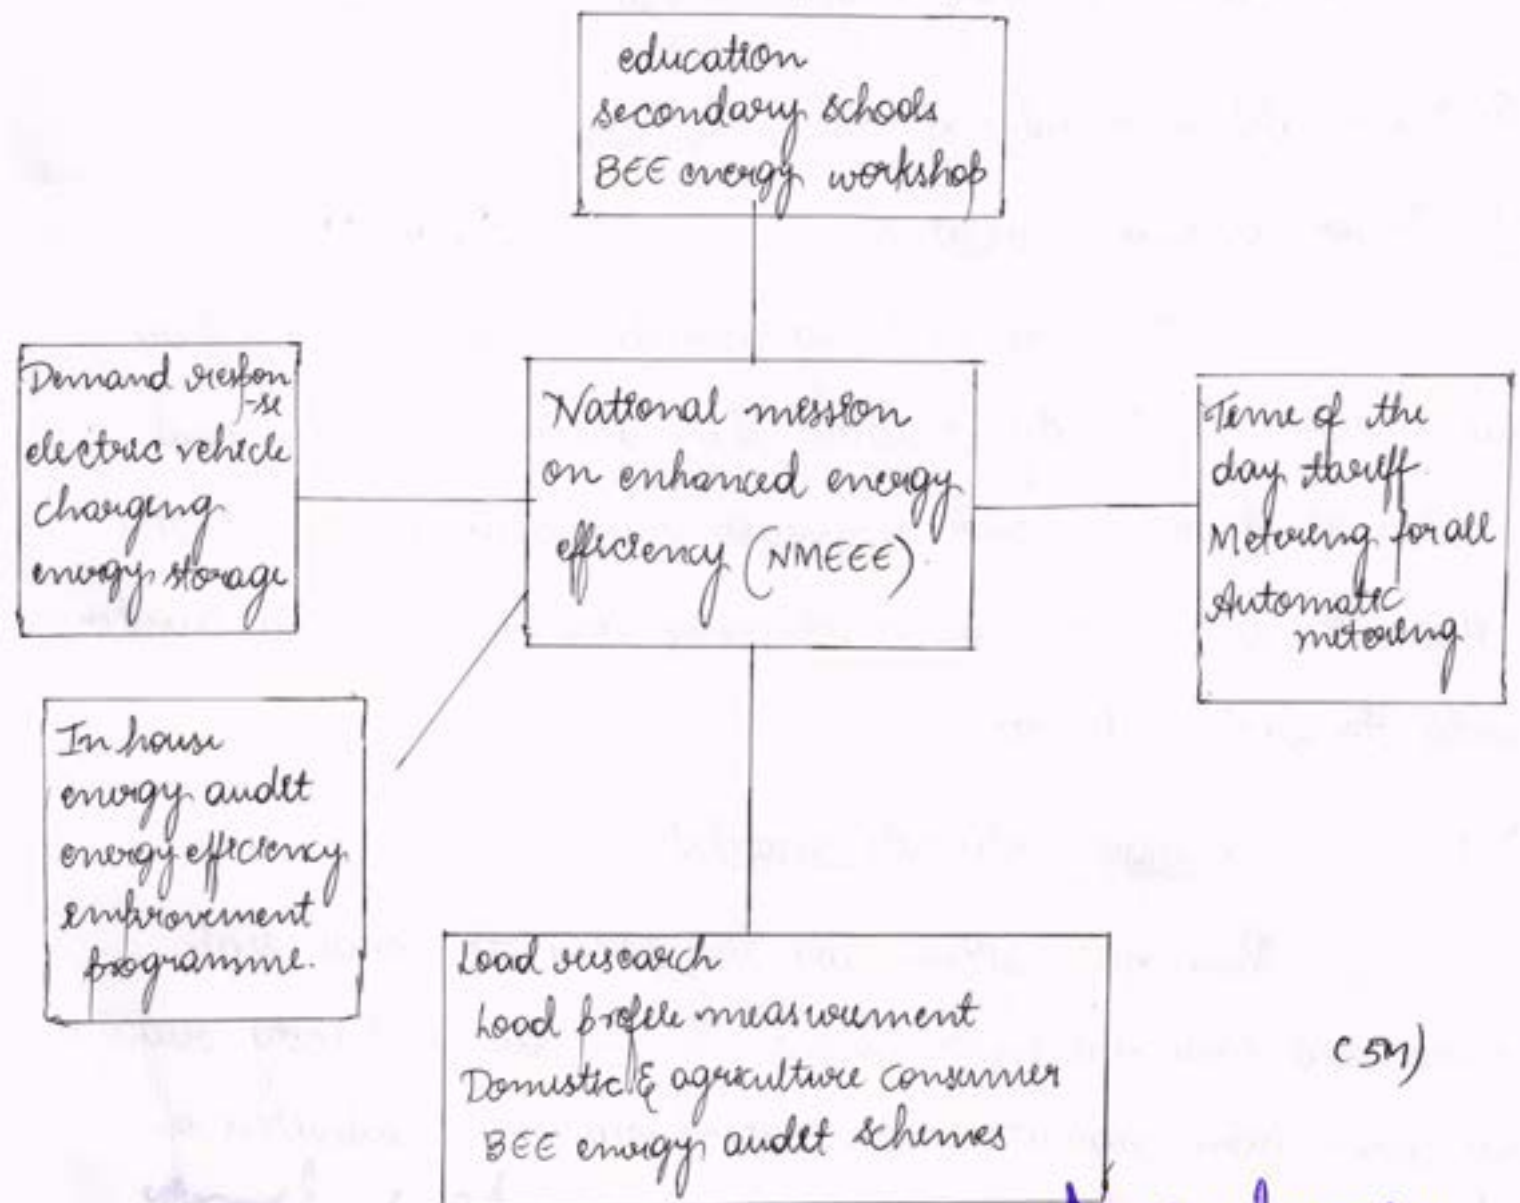 education
secondary schools
BEE energy workshop
Demand respon
-se
electric vehicle
charging
energy storage
National mission
on enhanced energy
efficiency (NMEEE)
Time of the
day tariff
Metering for all
Automatic
metering
In house
energy audit
energy efficiency
improvement
programme.
Load research
Load profile measurement
Domestic & agriculture consumer
BEE energy audit schemes
(5M)